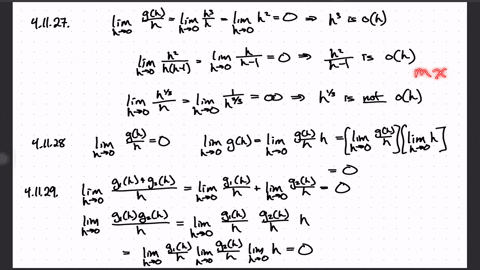 4.11.27. lim h→0 g(h)/h = lim h→0 h³/h = lim h→0 h² = 0 ⇒ h³ is o(h)
lim h→0 h²/h(h-1) = lim h→0 h/h-1 = 0 ⇒ h²/h-1 is o(h)
mx
lim h→0 h^1/3/h = lim h→0 1/h^2/3 = ∞ ⇒ h^1/3 is not o(h)
4.11.28 lim h→0 g(h)/h = 0 lim h→0 g(h) = lim h→0 g(h)/h h = [lim h→0 g(h)/h][lim h→0 h]
= 0
4.11.29. lim h→0 g₁(h)+g₂(h)/h = lim h→0 g₁(h)/h + lim h→0 g₂(h)/h = 0
lim h→0 g₁(h)g₂(h)/h = lim h→0 g₁(h)/h g₂(h)/h h
= lim h→0 g₁(h)/h lim h→0 g₂(h)/h lim h→0 h = 0